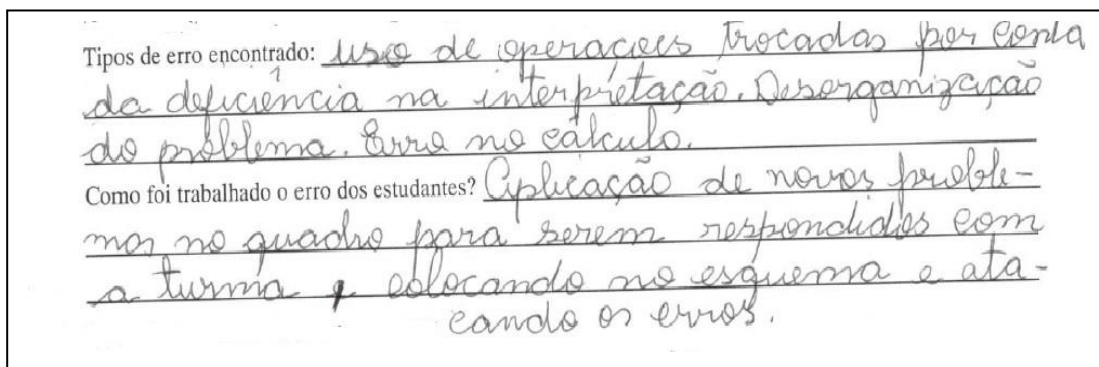 Tipos de erro encontrado: uso de operações trocadas por conta
da deficiência na interpretação. Desorganização
do problema. Erro no cálculo.
Como foi trabalhado o erro dos estudantes? Aplicação de novos proble-
mas no quadro para serem respondidos com
a turma, colocando no esquema e ata-
cando os erros.